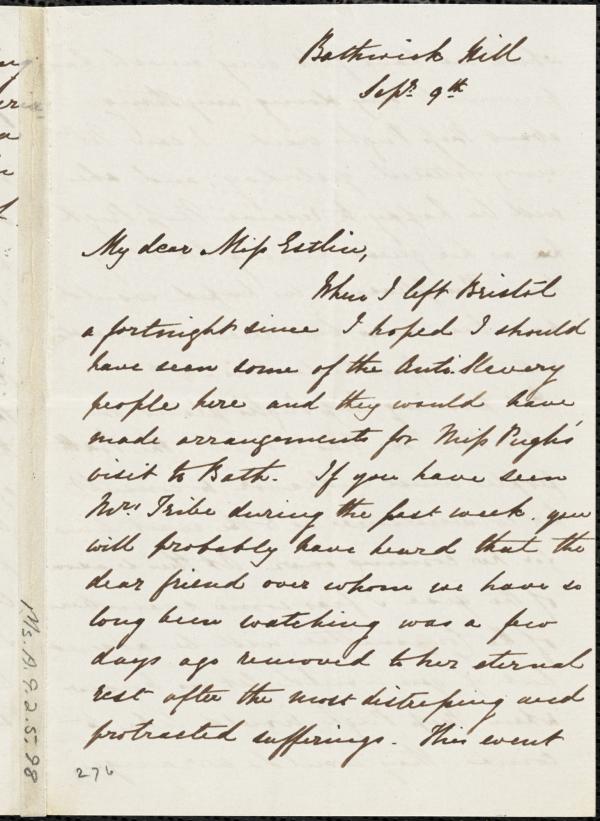 Bathwick Hill
Sepr. 9th
My dear Miss Estlin,
When I left Bristol
a fortnight since I hoped I should
have seen some of the Anti-Slavery
people here and they would have
made arrangements for Miss Pugh's
visit to Bath. If you have seen
Mrs. Tribe during the past week, you
will probably have heard that the
dear friend over whom we have so
long been watching was a few
days ago removed to her eternal
rest after the most distressing and
protracted sufferings. This event
276
Ms. A.9.2.5.98